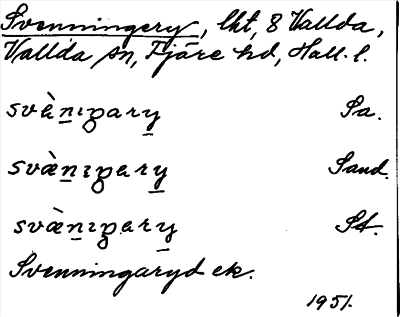 Svenningery, lht, 8 Vallda,
Vallda sn, Fjäre hd, Hall. l.
svènıgary Sa.
svæ̀nıgary Sand.
svæ̀nıgary St.
Svenningaryd ek.
1951.